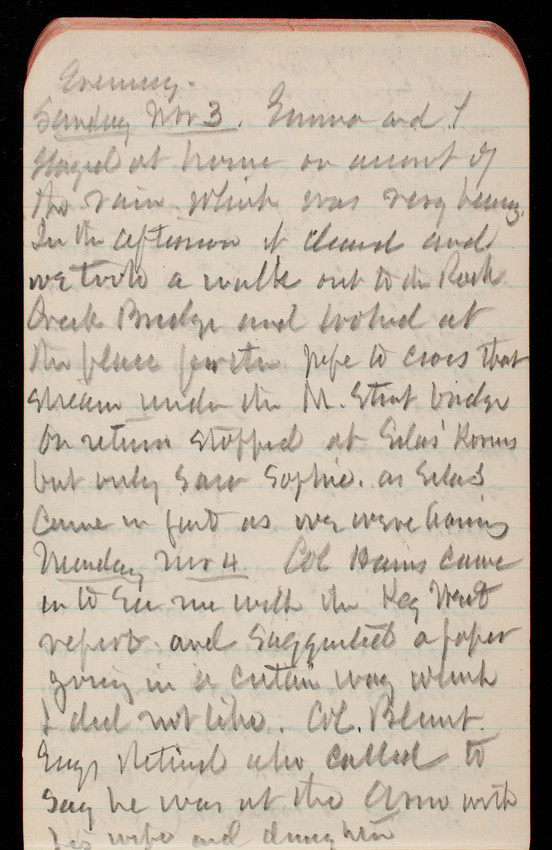 Evening.
Sunday Nov 3. Emma and I
staid at home on account of
the rain which was very heavy.
In the afternoon it cleared and
we took a walk out to the Rock
Creek Bridge and looked at
the place for the pipe to cross that
stream under the M. Street bridge
On return stopped at Silas' Rooms
but only saw Sophie. as Silas
came in just as we were leaving
Monday Nov 4. Col Hains came
in to see me with the Key West
report. and suggested a paper
going in a certain way which
I did not like. Col. Blunt.
Engs Retired also called to
say he was at the with
his wife and daughter